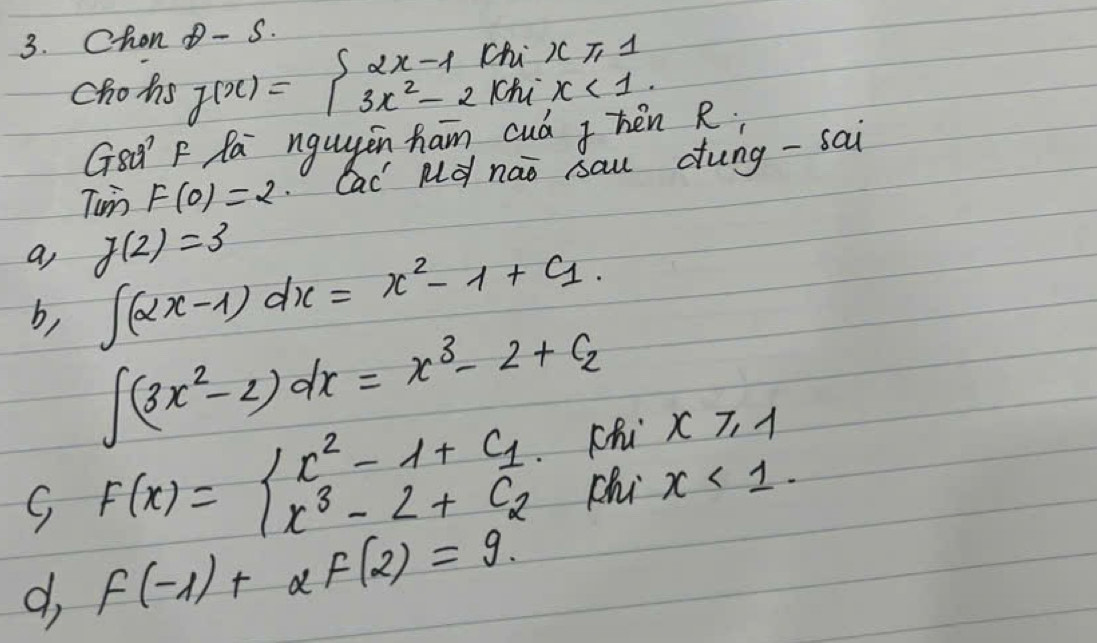 3. Chọn Đ - S.
Cho hs f(x) = { 2x-1 khi x ⩾ 1
3x² - 2 khi x < 1.
Gsử F là nguyên hàm của f trên R;
Tìm F(0) = 2. Các MĐ nào sau đúng - sai
a, f(2) = 3
b, ∫(2x-1) dx = x² - 1 + C₁.
∫(3x² - 2) dx = x³ - 2 + C₂
c, F(x) = { x² - 1 + C₁. khi x ⩾ 1
x³ - 2 + C₂ khi x < 1.
d, F(-1) + 2F(2) = 9.